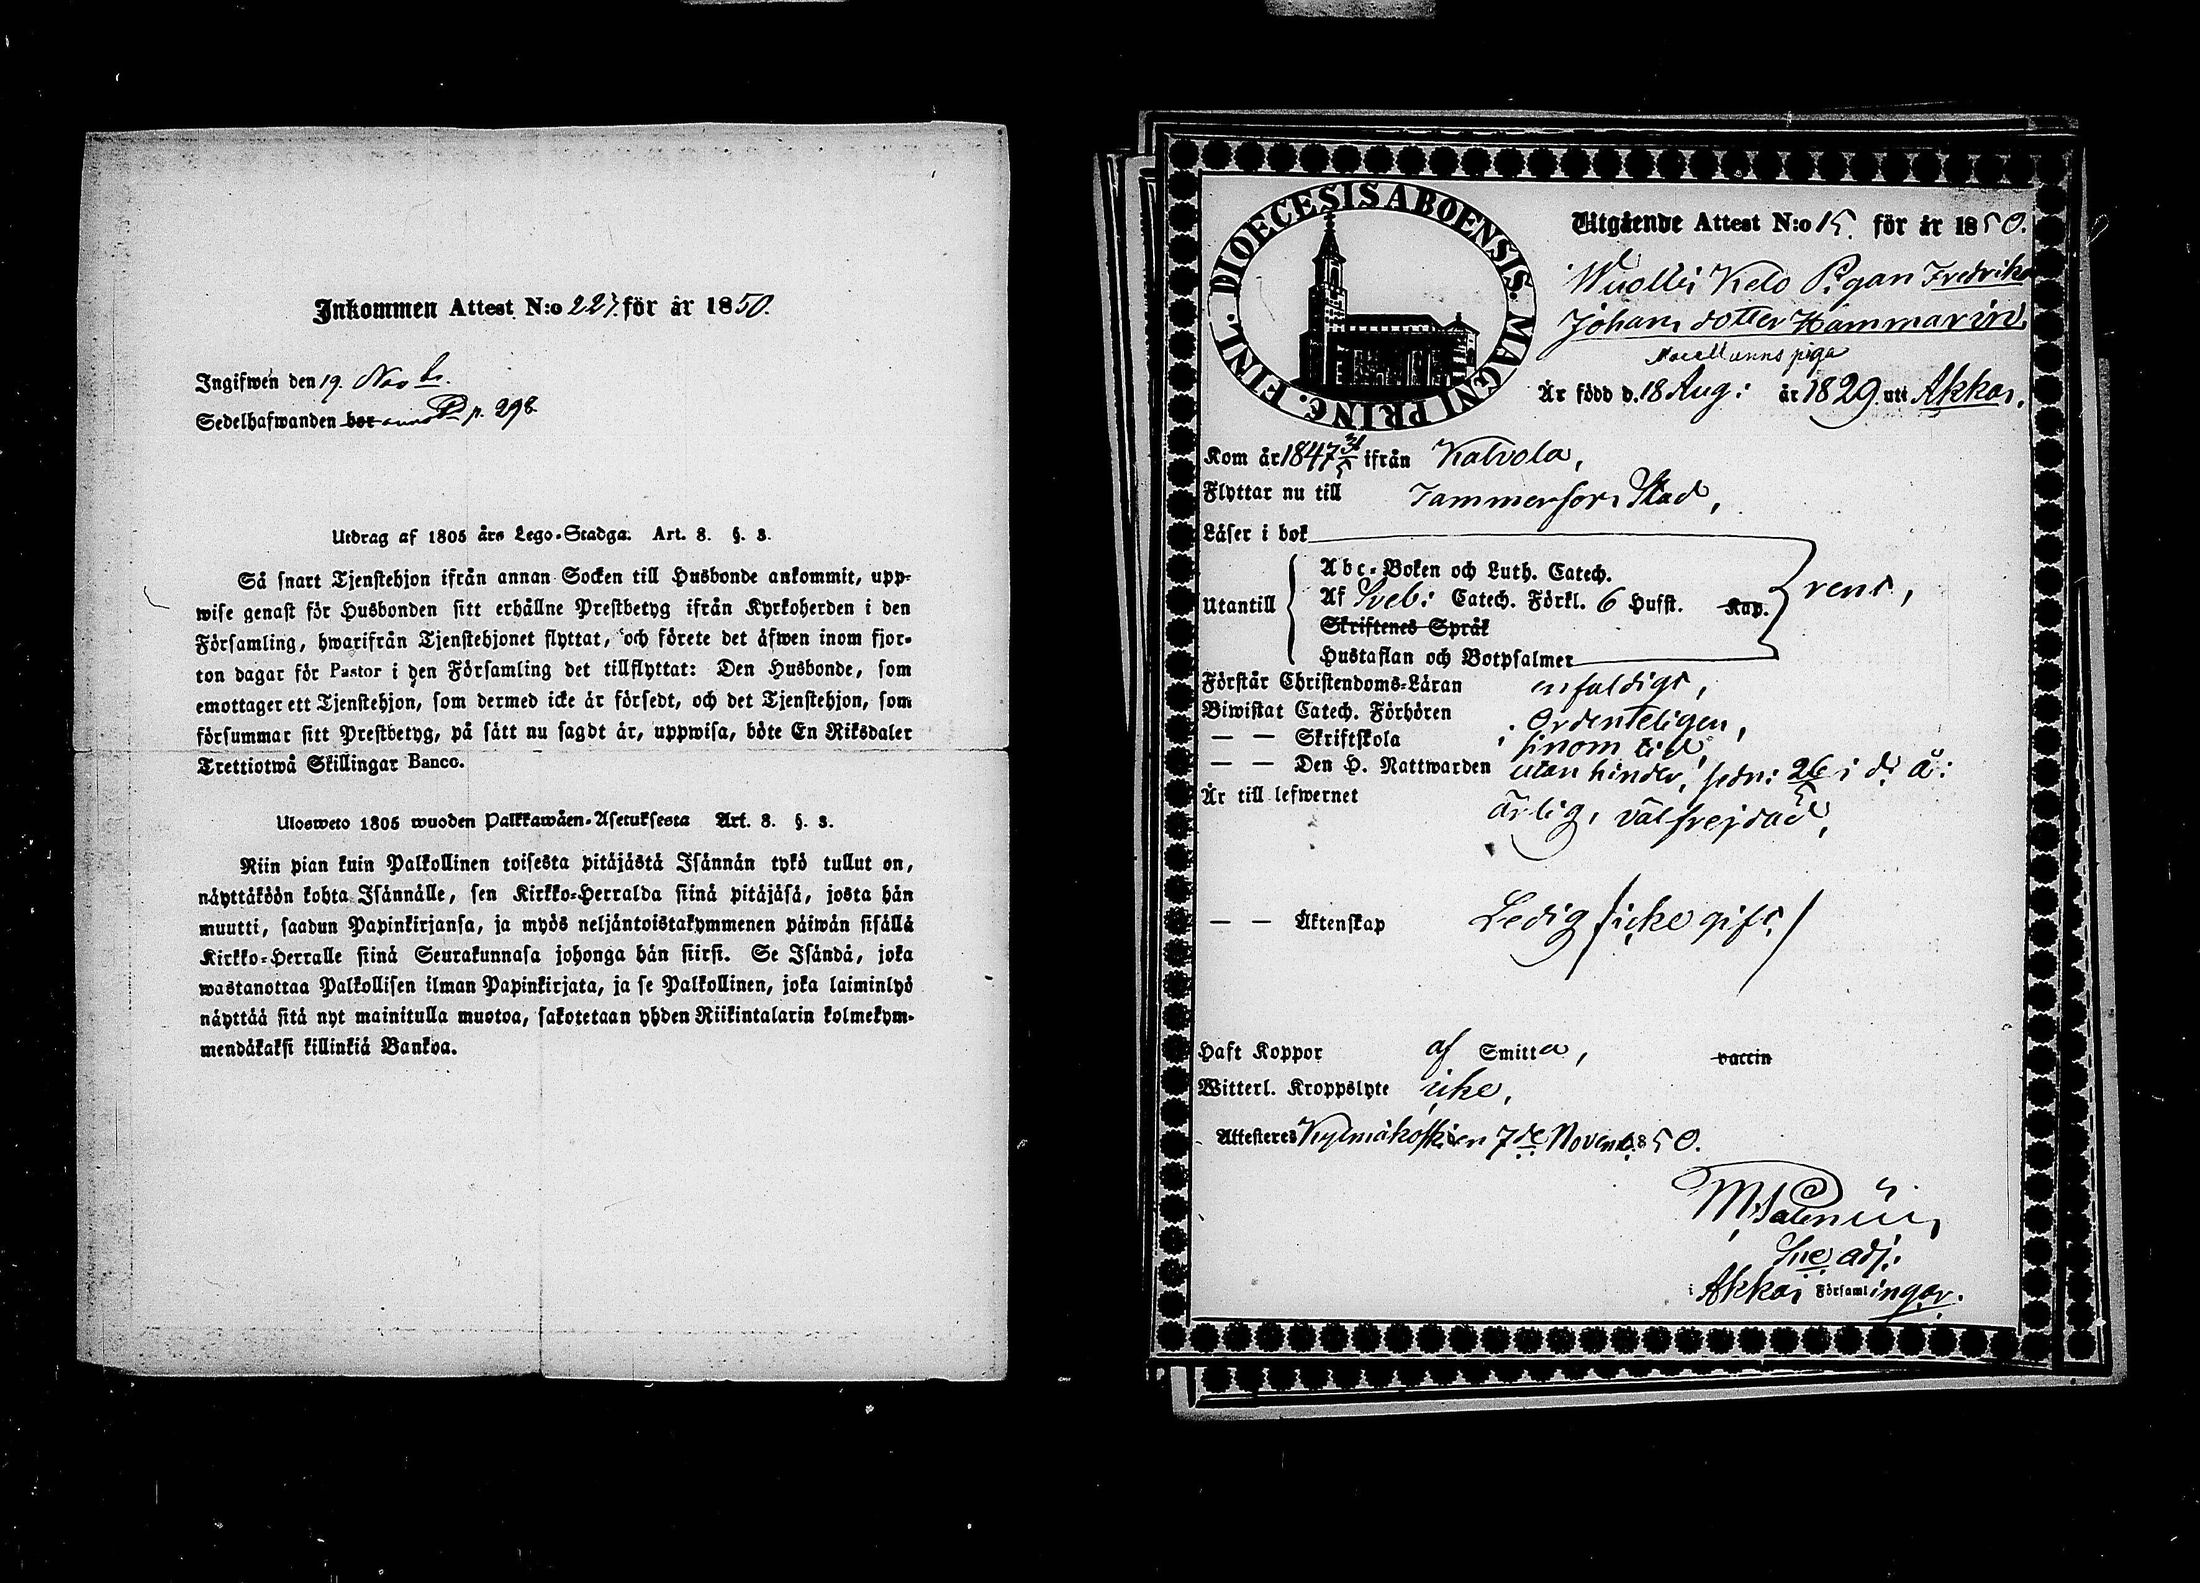 Inkommen Attest N:o 227. för år 1850.
Ingifwen den 19. Novbr.
Sedelhafwanden bor p. 298
Utdrag af 1805 års Lego-Stadga. Art. 8. §. 3.
Så snart Tjenstehjon ifrån annan Socken till Husbonde ankommit, upp-
wise genast för Husbonden sitt erhållne Prestbetyg ifrån Kyrkoherden i den
Församling, hwarifrån Tjenstehjonet flyttat, och förete det äfwen inom fjor-
ton dagar för Pastor i den Församling det tillflyttat: Den Husbonde, som
emottager ett Tjenstehjon, som dermed icke är försedt, och det Tjenstehjon, som
försummar sitt Prestbetyg, på sätt nu sagdt är, uppwisa, böte En Riksdaler
Trettiotwå Skillingar Banco.
Ulosweto 1805 wuoden Palkkawäen-Asetuksesta Art. 8. §. 3.
Niin pian kuin Palkollinen toisesta pitäjästä Isännän tykö tullut on,
näyttäköön kohta Isännälle, sen Kirkko-Herralda siinä pitäjäsä, josta hän
muutti, saadun Papinkirjansa, ja myös neljäntoistakymmenen päiwän sisällä
Kirkko-Herralle siinä Seurakunnasa johonga hän siirsi. Se Isändä, joka
wastanottaa Palkollisen ilman Papinkirjata, ja se Palkollinen, joka laiminlyö
näyttää sitä nyt mainitulla muotoa, sakotetaan yhden Riikintalarin kolmekym-
mendäkaksi killinkiä Bankoa.
DIOECESIS ABOENSIS. MAGNI PRINC. FINL.
Utgående Attest N:o 15. för år 1850.
Wuolle Kelo Pigan Fredrika
Johans dotter Hammarin,
piga
Är född d. 18 Aug: år 1829 uti Akkas.
Kom år 1847 31/5 ifrån Kalvola,
Flyttar nu till Tammerfors Stad,
Läser i bok
Abc-Boken och Luth. Catech.
Utantill Af Sveb: Catech. Förkl. 6 Hufst. Kap. rent,
Skriftenes Språk
Hustaflan och Botpsalmer
Förstår Christendoms-Läran enfaldigt,
Biwistat Catech. Förhören Ordenteligen,
— — Skriftskola
— — Den H. Nattwarden utan hinder, sedn: 26/5 i d. å:
Är till lefwernet ärlig, välfrejdad,
— — Äktenskap Ledig /icke gift./
Haft Koppor af Smitta, vaccin
Witterl. Kroppslyte icke,
Attesteres Kylmäkoski den 7de Novemb. 1850.
adj.
i Akkas Församlingar.